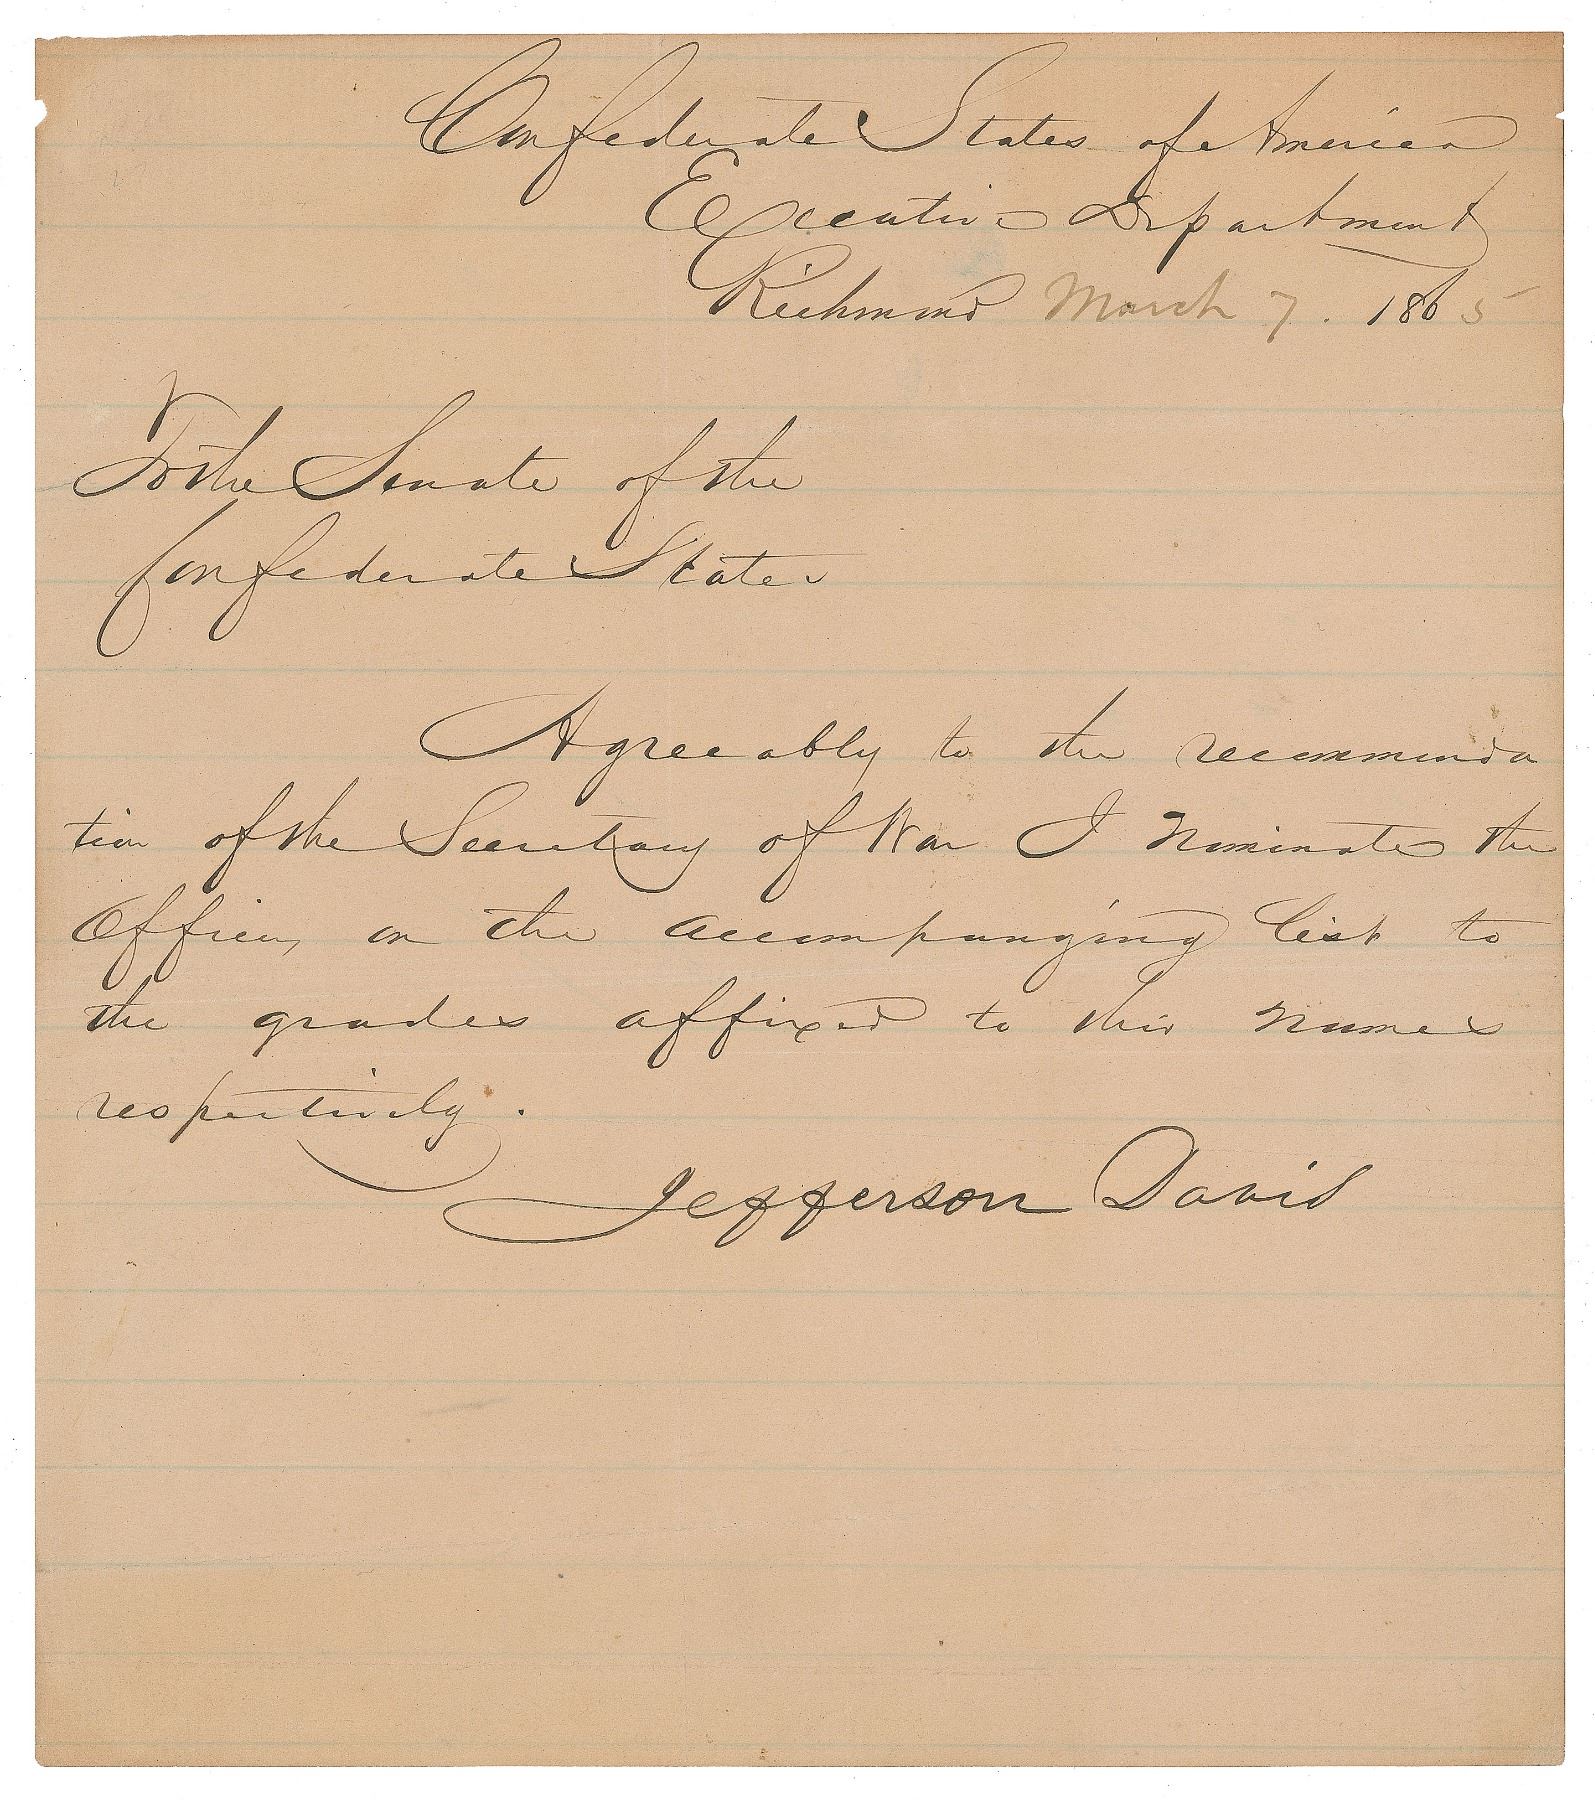 Confederate States of America
Executive Department
Richmond March 7. 1865
To the Senate of the
Confederate States
Agreeably to the recommenda
tion of the Secretary of War I nominate the
Officers on the accompanying list to
the grades affixed to their names
respectively.
Jefferson Davis